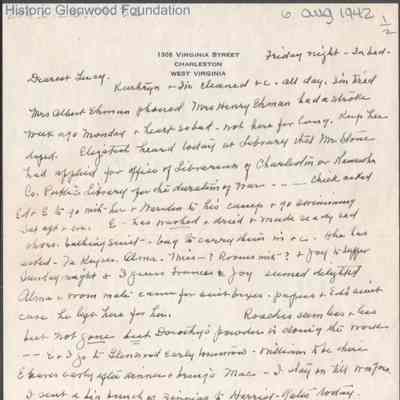 Historic Glenwood Foundation
6 Aug 1942
1/2
1306 VIRGINIA STREET
CHARLESTON
WEST VIRGINIA
Friday night - In bed -
Dearest Lucy.
Kathryn + I'm cleaned + c. all day. I'm tired
Mrs Albert Ehman phoned Mrs Henry Ehman had a stroke
week ago Monday + heart so bad - not here for long. Keep her
doped. Elizabeth heard today at Library that Mr. Stone
had applied for office of Librarian of Charleston or Kanawha
Co. Public Library for the duration of war - - - - Cheek asked
Ed + E to go with her + to his camp + go swimming
Sat aft + eve. E - has washed + dried + made ready sad
shoes. bathing suit - bag to carry them in + c. She has
asked - Keyser, Alma. Miss -? Roommate? + Joy to supper
Sunday night + I guess Frances + Joy seemed delighted
Alma + room mate came for suit - pajjers + Ed's suit
case he left here for her. Roaches seem less + less
but not gone - but Dorothy's powder is doing the work
- - E + I go to Glenwood early tomorrow - William to be there
E leaves early after dinner + brings Mac - I stay on till
I sent a big bunch of Zinnias to Harriet - today.